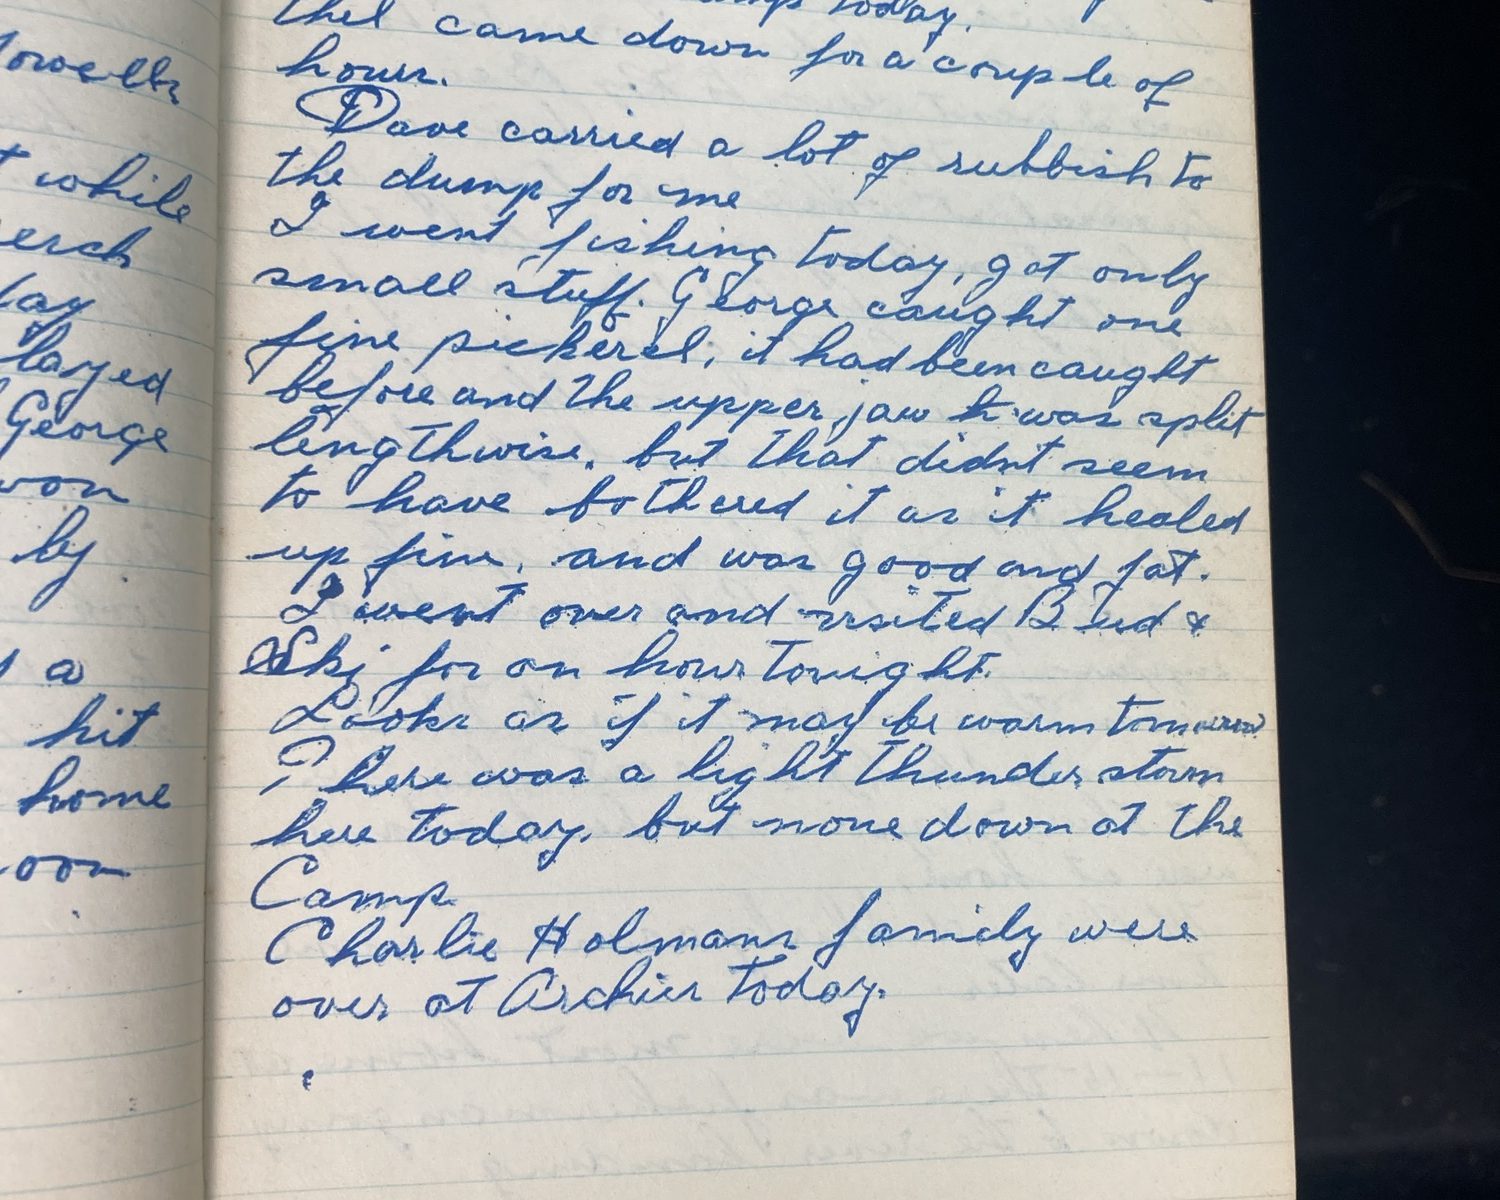 owells
while
erch
lay
layed
George
won
by
a
hit
home
oon
today.
thel came down for a couple of
hours.
Dave carried a lot of rubbish to
the dump for me
I went fishing today, got only
small stuff. George caught one
fine pickerel, it had been caught
before and the upper jaw was split
lengthwise. but that didnt seem
to have bothered it as it healed
up fine, and was good and fat.
I went over and visited Bud &
Ski for an hour tonight.
Looks as if it may be warm tomorrow
There was a light thunder storm
here today. but none down at the
Camp.
Charlie Holmans family were
over at Archies today.